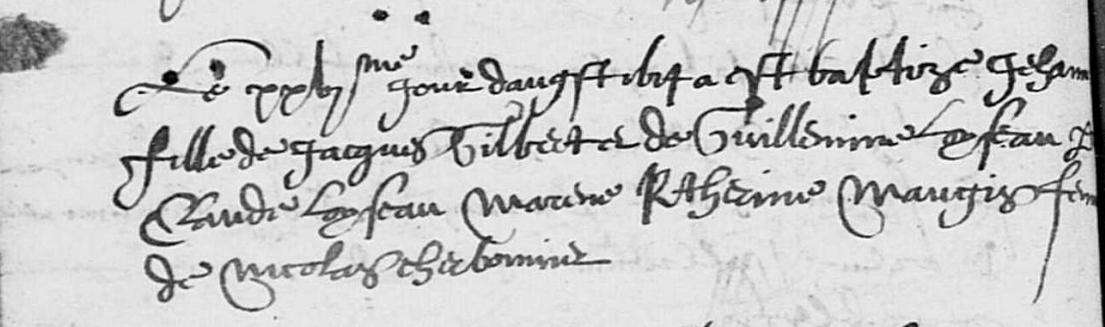 Le xxvi me jour daugst a est baptize Jehann
fille de Jacques Gilbert et de Guillemine Loyseau P
Claude Loyseau Marene Katherine Maugis fem
de Nicolas cherbonnier